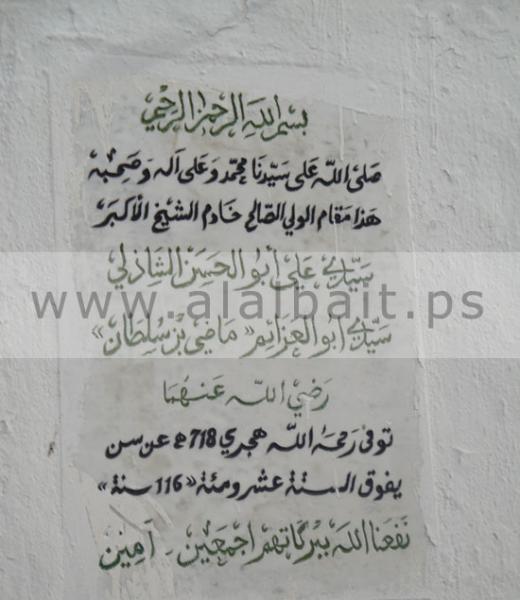 بسم الله الرحمن الرحيم
صَلى اللّه عَلى سَيّدنَا محمّد وَعَلى آله وَصَحبه
هَذا مَقام الولي الصّالح خَادم الشّيْخ الأكبَر
سَيّدِي عَلي أبُو الحَسَن الشَاذلي
www.alalbait.ps
سَيّدِي أبُو العَزَائِم «مَاضي بْنْ سُلطَان»
رَضيَ اللّه عَنهُمَا
توفى رَحمَهُ اللّه هجري 718 ه عن سن
يفوق الستة عشر ومئة «116 سنة»
نَفَعَنا اللّه ببَركَاتهم أجمَعين - آمين